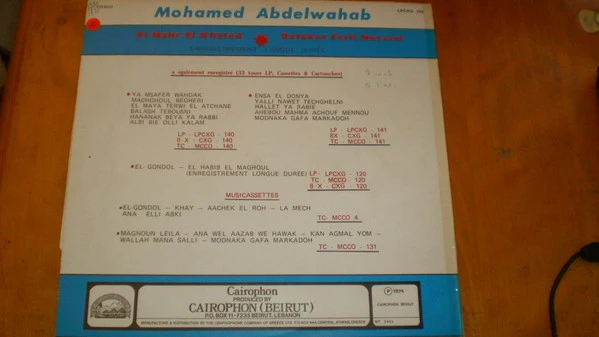 STEREO
Mohamed Abdelwahab
LPCXG
El Nahr El Khaled
ENREGISTREMENT LONGUE DUREE
a également enregistré (33 tours LP, Cassettes & Cartouches)
YA MSAFER WAHDAK
MACHGHOUL BEGHERI
EL MAYA TERWI EL ATCHANE
BALASH TEBOUSNI
HANANAK BEYA YA RABBI
ALBI BIE OLLI KALAM
LP - LPCXG - 140
8 X - CXG - 140
TC - MCCO - 140
ENSA EL DONYA
YALLI NAWET TECHGHELNI
HALLET YA SABR
AHEBOU MAHMA ACHOUF MENNOU
MODNAKA GAFA MARKADOH
LP - LPCXG - 141
8X - CXG - 141
TC - MCCO - 141
EL-GONDOL - EL HABIB EL MAGHOUL
(ENREGISTREMENT LONGUE DUREE)
LP - LPCXG - 120
TC - MCCO - 120
8-X - CXG - 120
MUSICASSETTES
EL-GONDOL - KHAY - AACHEK EL ROH - LA MECH
ANA ELLI ABKI
TC- MCCO 4
MAGNOUN LEILA - ANA WEL AAZAB WE HAWAK - KAN AGMAL YOM -
WALLAH MANA SALLI - MODNAKA GAFA MARKADOH
TC - MCCO - 131
Cairophon
PRODUCED BY
CAIROPHON (BEIRUT)
P.O. BOX 11-7235 BEIRUT, LEBANON
CAIROPHON BEIRUT